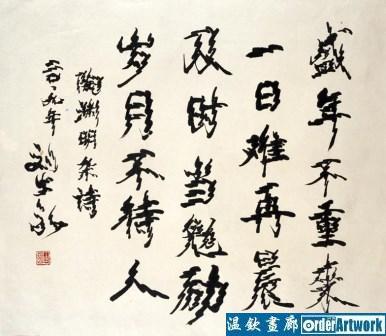 盛年不重来
一日难再晨
及时当勉励
岁月不待人
陶渊明杂诗
九年
温钦畫廊 OrderArtwork